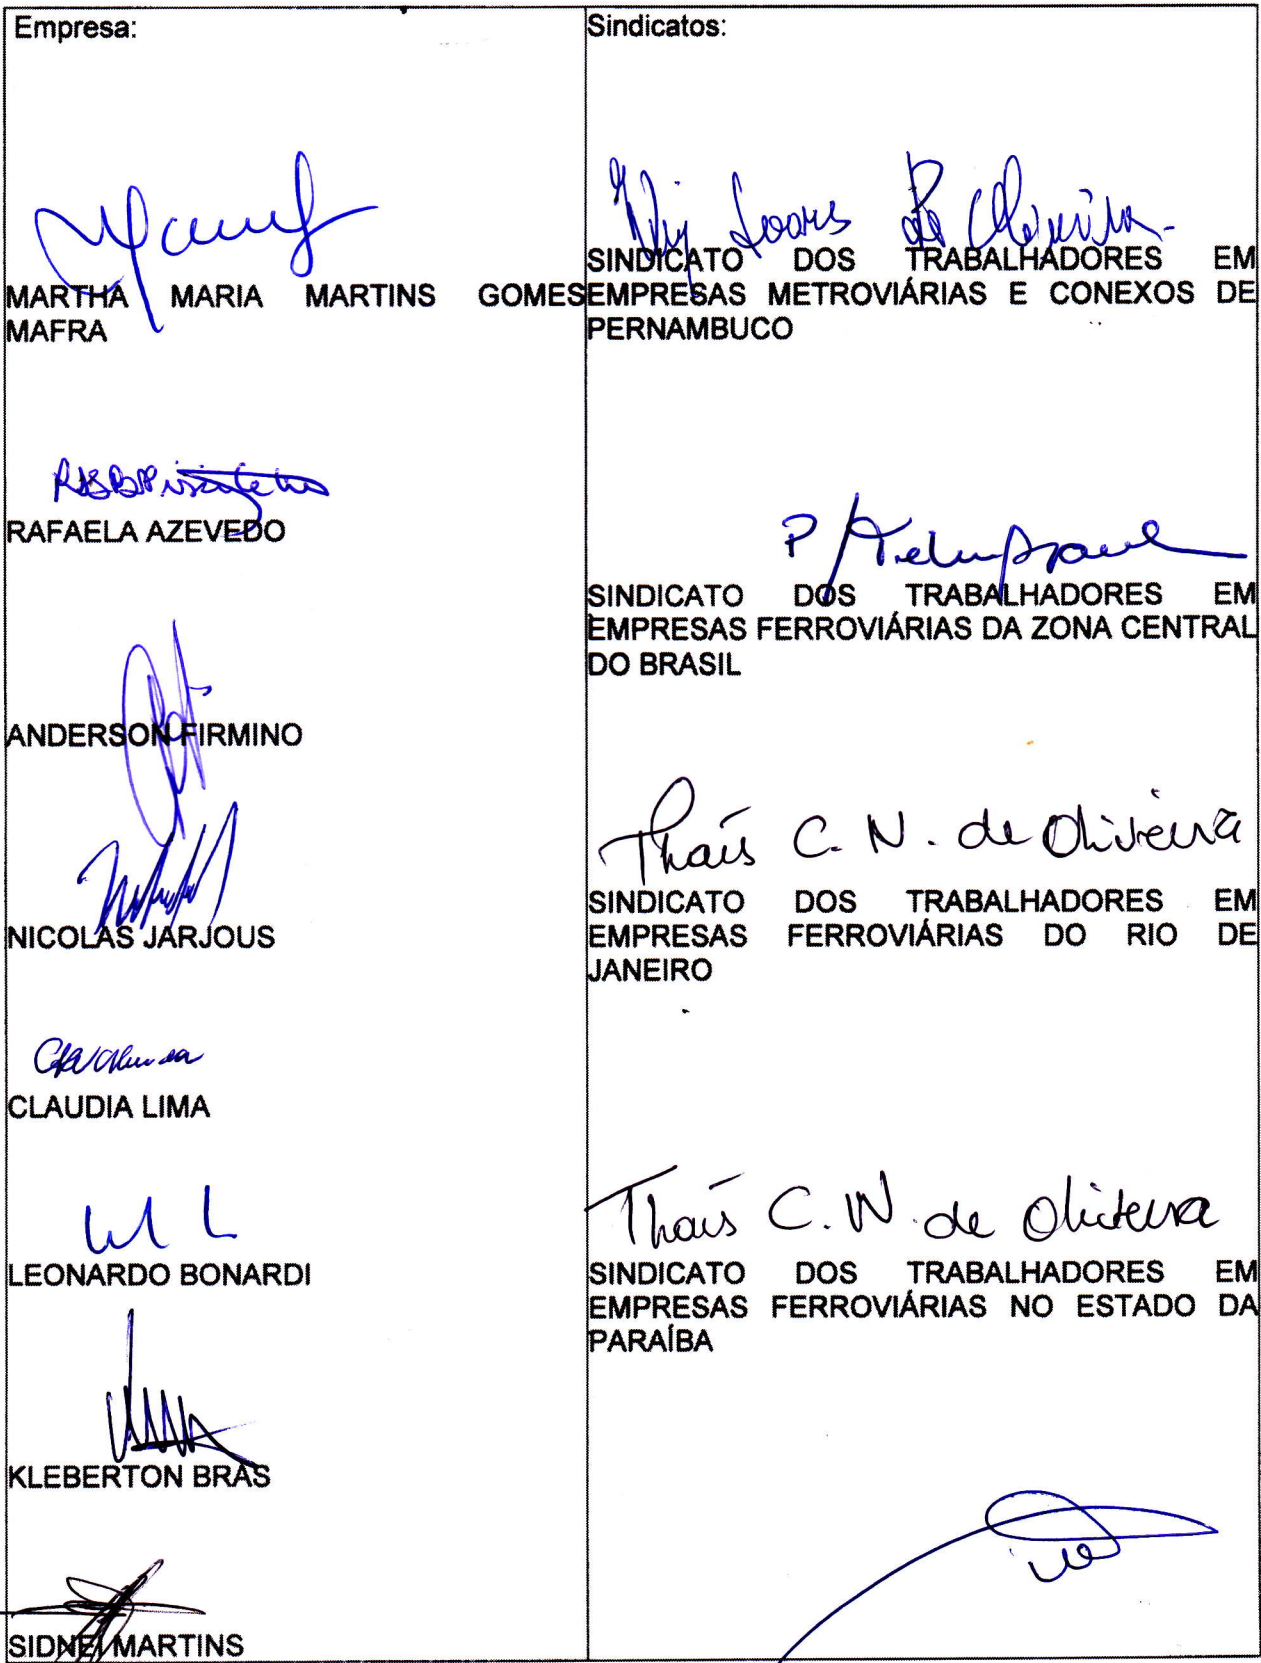 Empresa:
MARTHA MARIA MARTINS GOMES
MAFRA
RAFAELA AZEVEDO
ANDERSON FIRMINO
NICOLAS JARJOUS
CLAUDIA LIMA
LEONARDO BONARDI
KLEBERTON BRAS
SIDNEI MARTINS
Sindicatos:
Soares de Oliveira
SINDICATO DOS TRABALHADORES EM
EMPRESAS METROVIÁRIAS E CONEXOS DE
PERNAMBUCO
P/
SINDICATO DOS TRABALHADORES EM
EMPRESAS FERROVIÁRIAS DA ZONA CENTRAL
DO BRASIL
Thaís C. N. de Oliveira
SINDICATO DOS TRABALHADORES EM
EMPRESAS FERROVIÁRIAS DO RIO DE
JANEIRO
Thaís C. N. de Oliveira
SINDICATO DOS TRABALHADORES EM
EMPRESAS FERROVIÁRIAS NO ESTADO DA
PARAÍBA